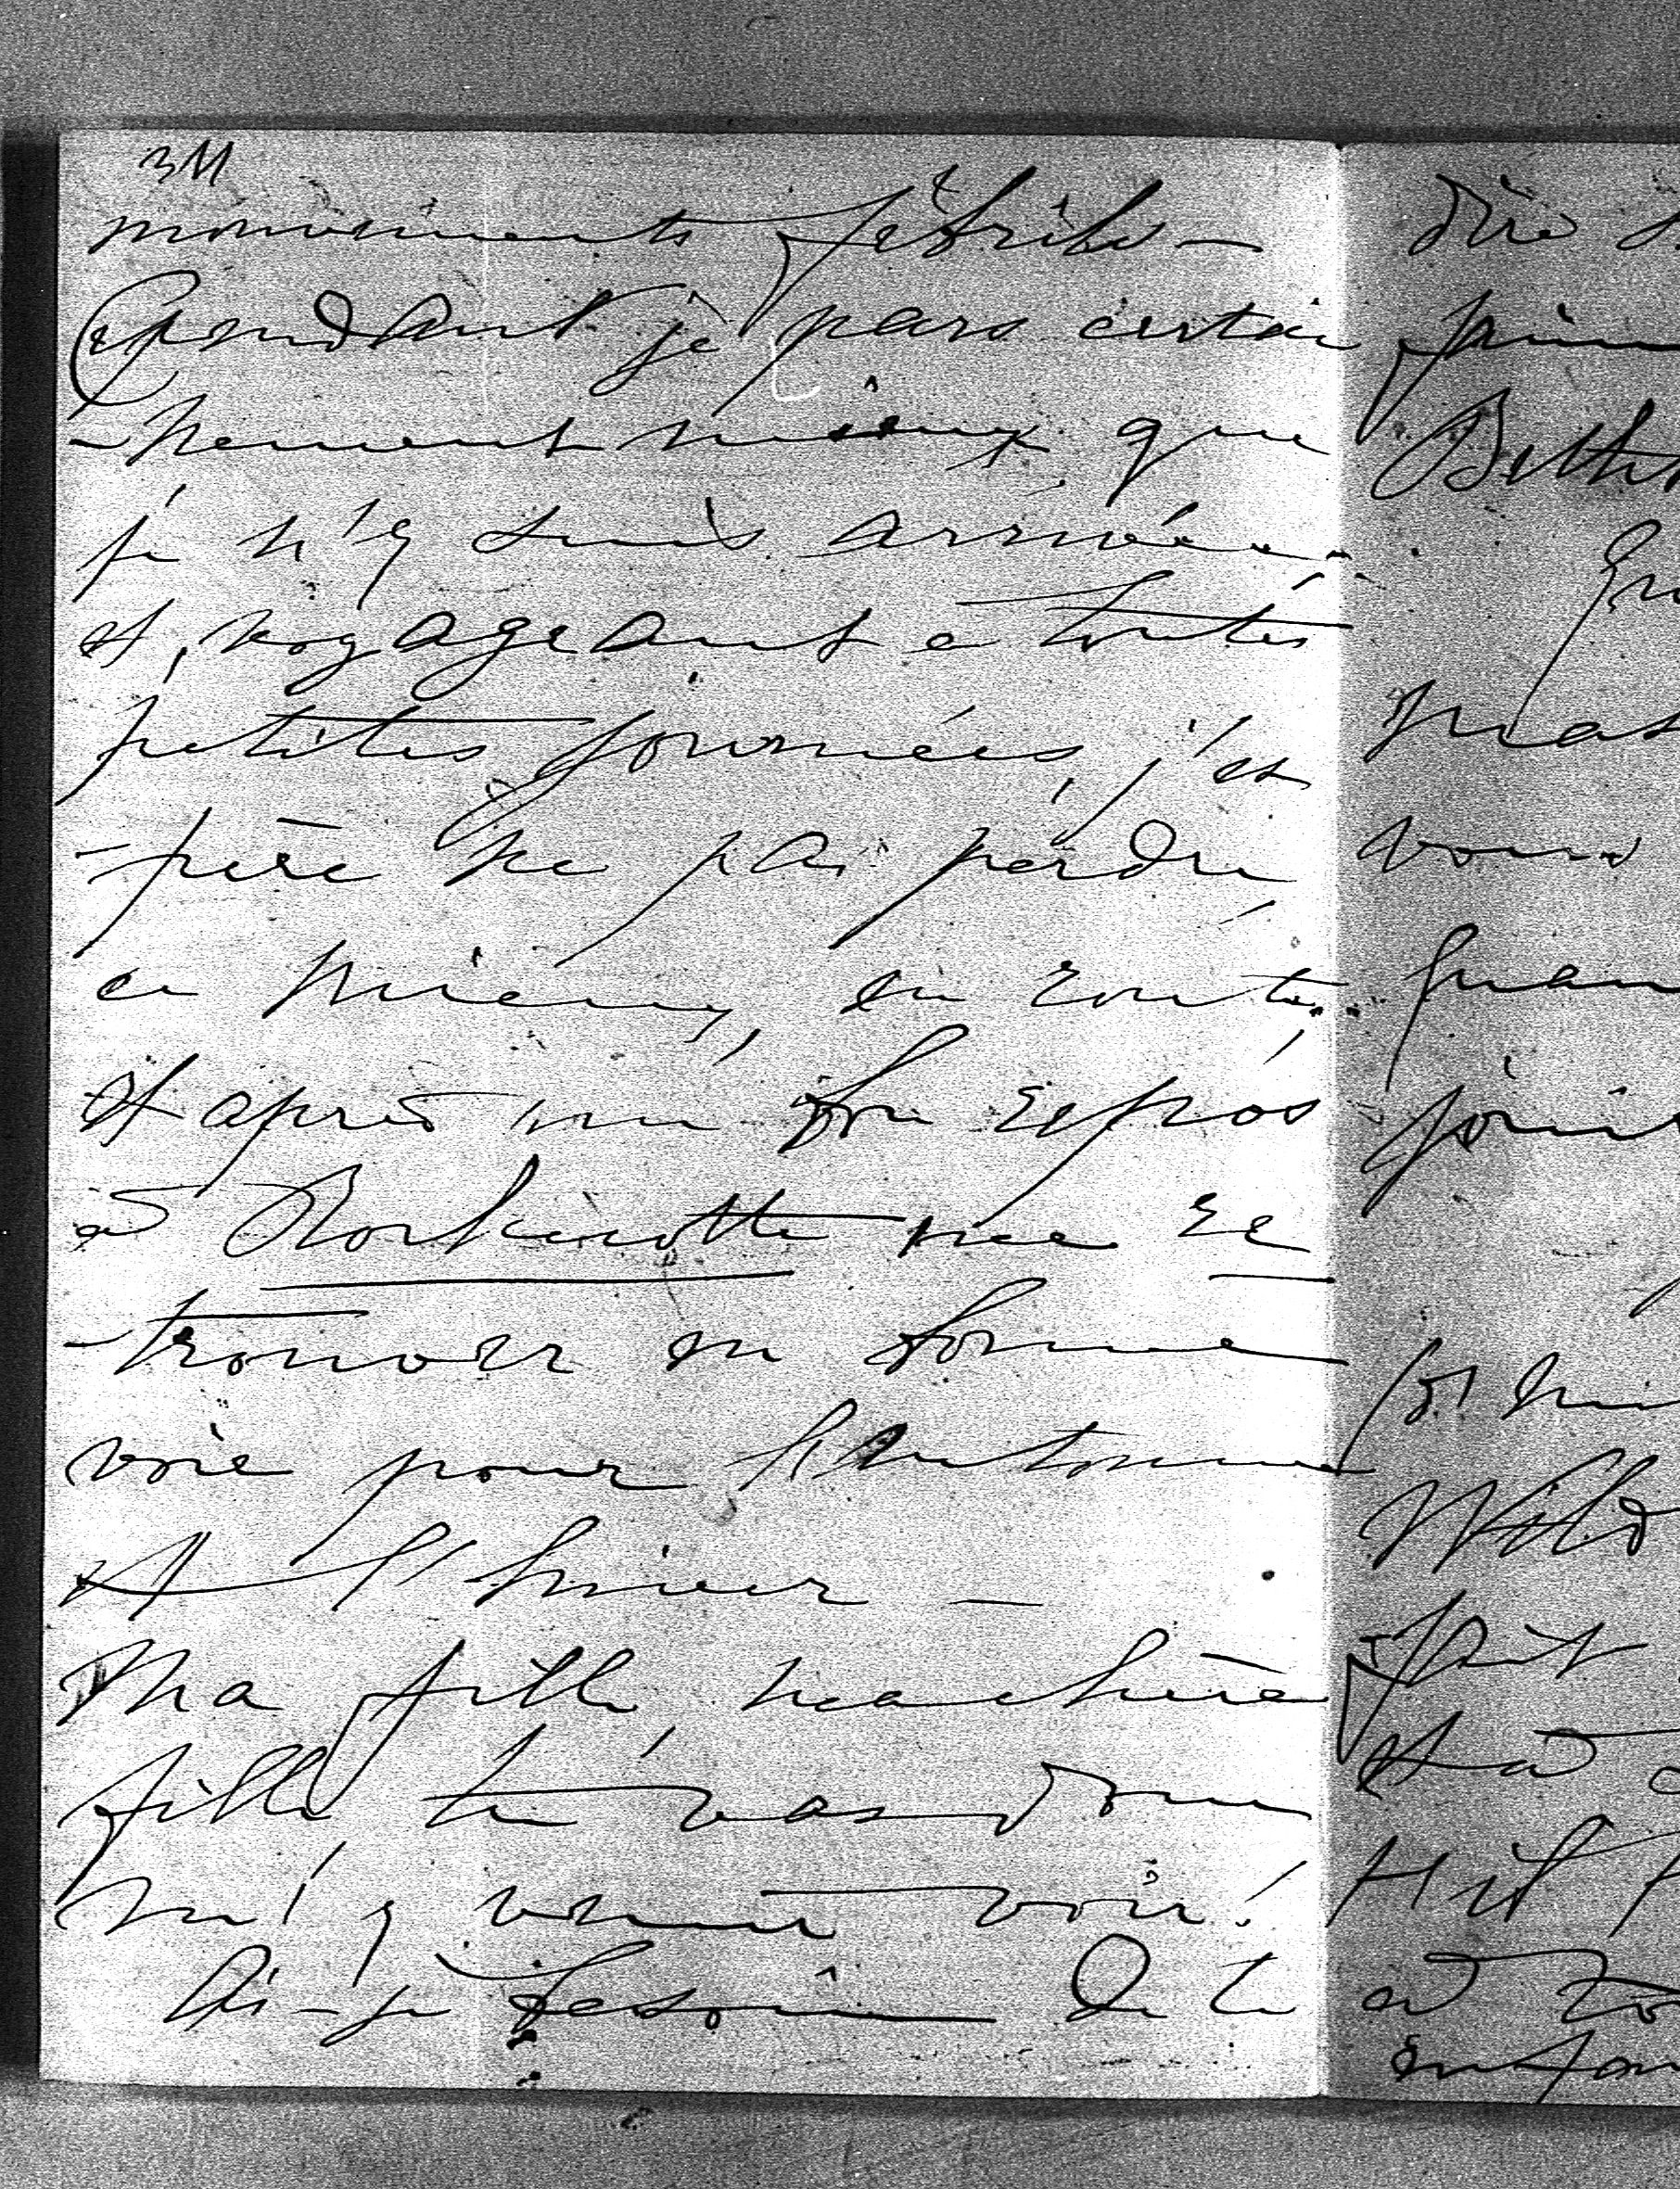 311
mouvements fébriles —
Cependant je pars certai
-nement mieux que
je n'y suis arrivée.
et, voyageant a toutes
petites journées, j'es
-père ne pas perdre
ce mieux, en route.
et après un bon repos
à me re
-trouver en bonne
voie pour l'automne
et l'hiver —
Ma fille, ma chère
fille, tu vas donc
m'y venir voir!
Ai-je besoin de te
dire
Beth
vous
quan
join
Wild
et à
et il
à